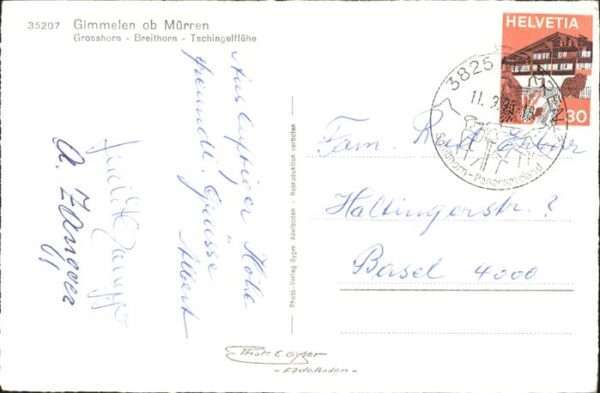 35207 Gimmelen ob Mürren
Grosshorn - Breithorn - Tschingelflühe
Aus luftiger Höhe
freundl. Grüsse
Albert
Judith
A. Zanger
Photo-Verlag Gyger Adelboden - Reproduktion verboten
HELVETIA
30
3825
11. 9.
Schilthorn-Panoramaland
Fam.
Haltingerstr. 2
Basel 4000
Gyger
- Adelboden -